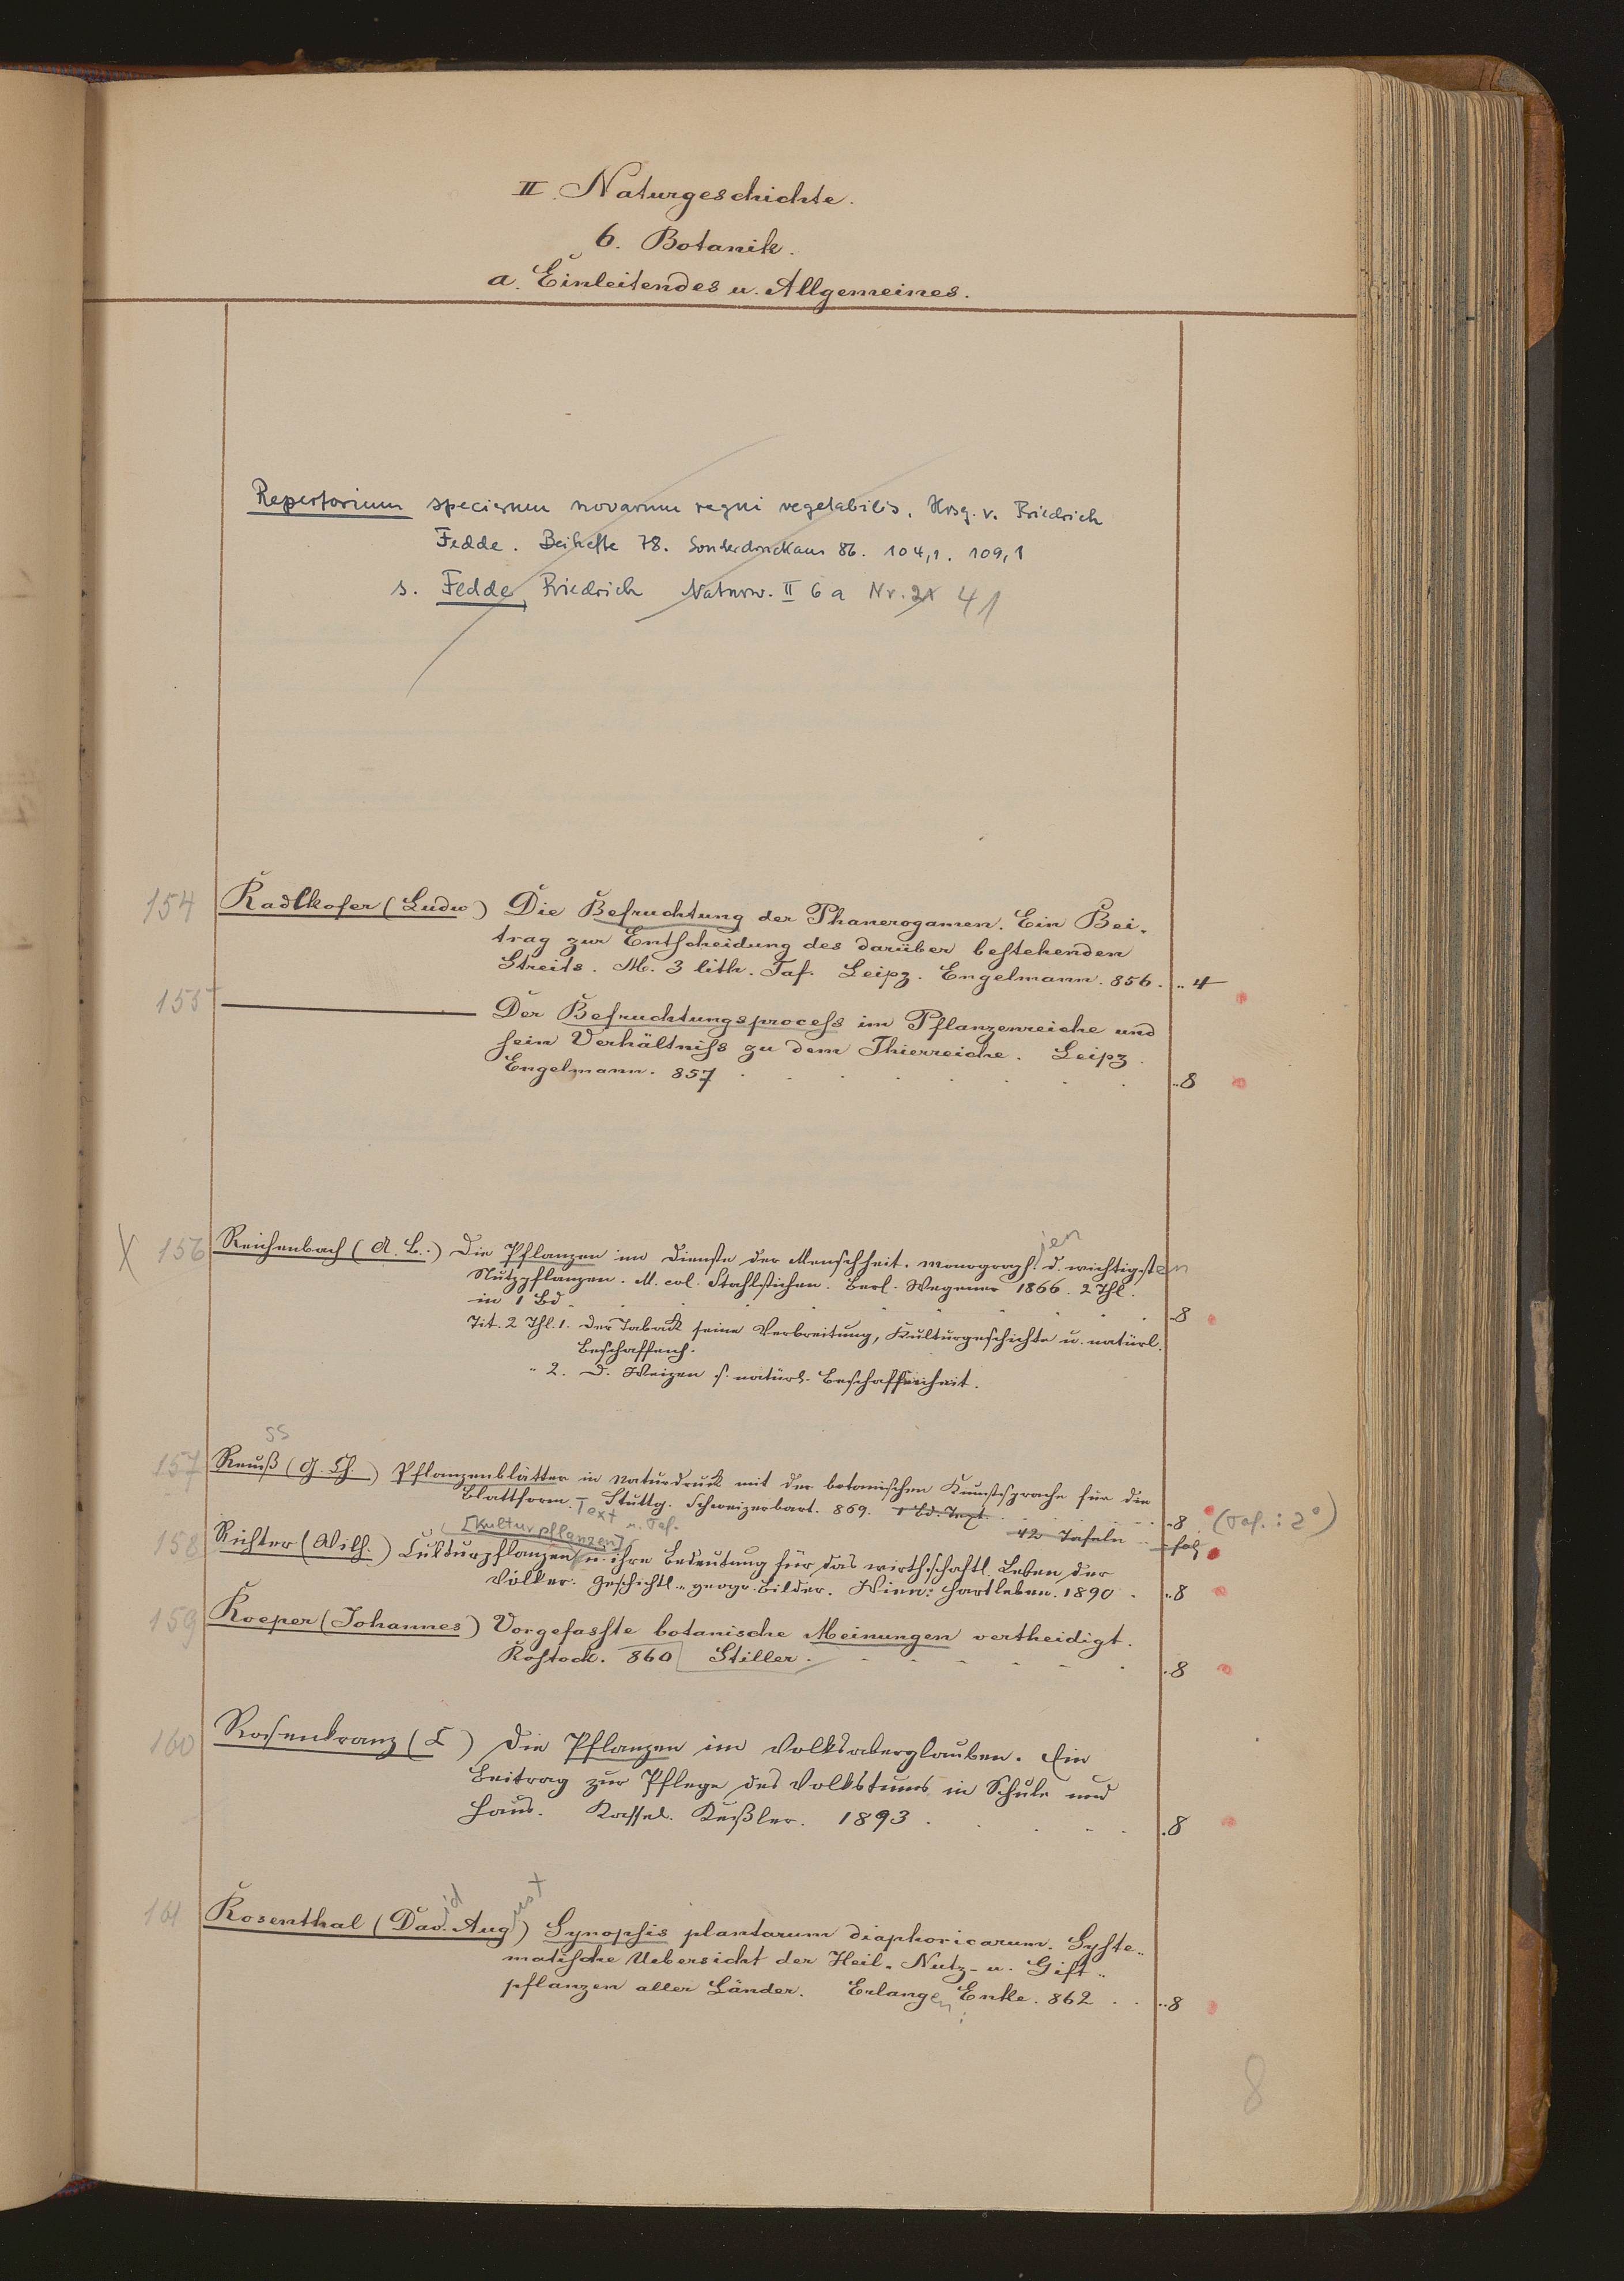 II. Naturgeschichte.
6. Botanik.
a. Einleitendes u. Allgemeines.
Repertorium specierum novarum regni vegetabilis. Hrsg. v. Friedrich
Fedde. Beihefte 78. Sonderdruck aus 86. 104,1. 109,1
s. Fedde, Friedrich Naturw. II 6 a Nr. 21 41
154 Radlkofer (Ludw) Die Befruchtung der Phanerogamen. Ein Bei-
trag zur Entscheidung des darüber bestehenden
Streits. M. 3 lith. Taf. Leipz. Engelmann. 856. .. 4
155 Der Befruchtungsprocess im Pflanzenreiche und
sein Verhältniss zu dem Thierreiche. Leipz.
Engelmann. 857 . . . . . . . .. 8
X 156 Reichenbach (A. B.) Die Pflanzen im Dienste der Menschheit. Monograph.ien d. wichtigsten
Nutzpflanzen. M. col. Stahlstichen. Berl. Wegener 1866. 2 Thl.
in 1 Bd. . . . . . . . . . 8
Tit. 2 Thl. 1. Der Taback seine Verbreitung, Kulturgeschichte u. natürl.
Beschaffenh.
" 2. D. Weizen s. natürl. Beschaffenheit.
ss
157 Reuß (G. Ch.) Pflanzenblätter in Naturdruck mit der botanischen Kunstsprache für die
Blattform. Text u. Taf. Stuttg. Schweizerbart. 869. 1 Bd. Text. . . . . . 8 (Taf.: 2°)
42 Tafeln .. fol.
[Kulturpflanzen]
158 Richter (Wilh.) Culturpflanzen u. ihre Bedeutung für das wirthschaftl. Leben der
Völker. Geschichtl.-geogr. Bilder. Wien: Hartleben. 1890 . .. 8
159 Roeper (Johannes) Vorgefasste botanische Meinungen vertheidigt.
Rostock. 860 Stiller. . . . . . . .. 8
160 Rosenkranz (C) Die Pflanzen im Volksaberglauben. Ein
Beitrag zur Pflege des Volkstums in Schule und
Haus. Kassel. Keßler. 1893 . . . . . . 8
161 Rosenthal (David Aug.ust) Synopsis plantarum diaphoricarum. Syste-
matische Uebersicht der Heil-, Nutz- u. Gift-
pflanzen aller Länder. Erlangen: Enke. 862 . . .. 8
8